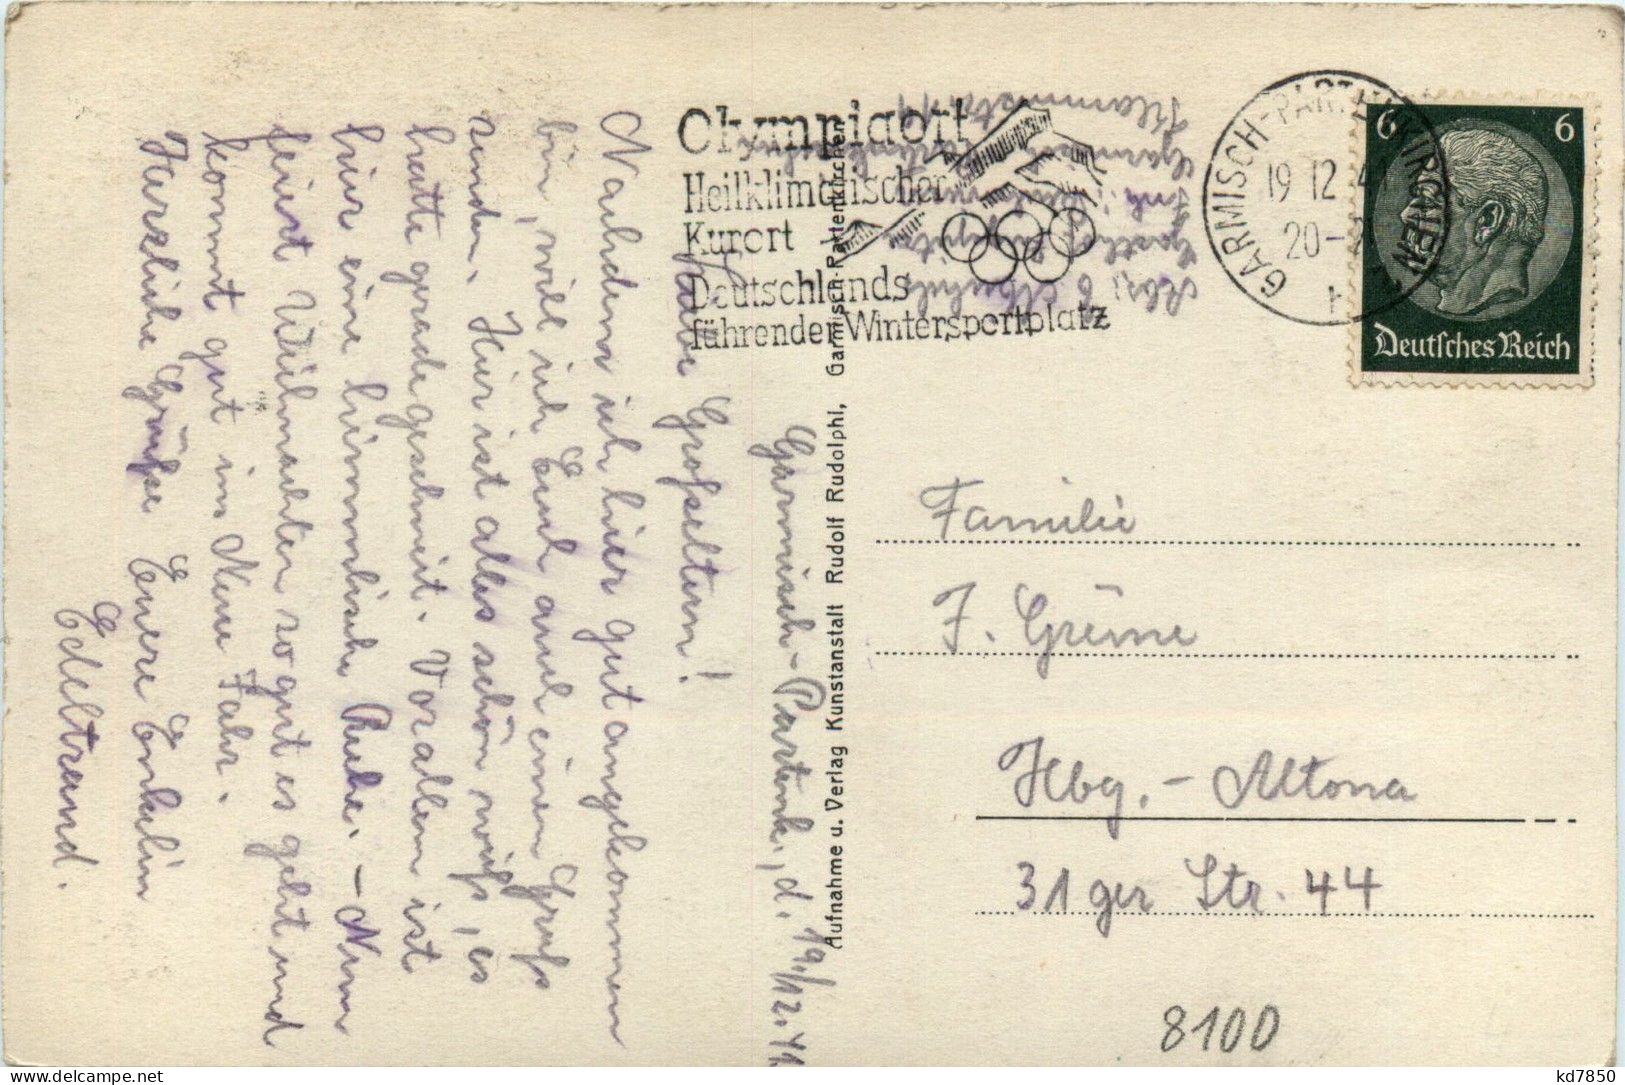 Garmisch-Partenk., d. 19./12.41
Liebe Großeltern!
Nachdem ich hier gut angekommen
bin, will ich Euch auch einen Gruß
senden. Hier ist alles schön weiß, es
hatte gerade geschneit. Vor allem ist
hier eine himmlische Ruhe. – Nun
feiert Weihnachten so gut es geht und
kommt gut im Neue Jahr.
Herzliche Grüße Euere Enkelin
Edeltraud.
Olympiaort
Heilklimatischer
Kurort
Deutschlands
führender Wintersportplatz
GARMISCH-PARTENKIRCHEN
19 12
20-
6 6
Deutsches Reich
Abs.
Gasth.
Inh.
Aufnahme u. Verlag Kunstanstalt Rudolf Rudolphi, Garmisch-Partenkirchen
Familie
F. Greme
Hbg.-Altona
31ger Str. 44
8100
kd7850